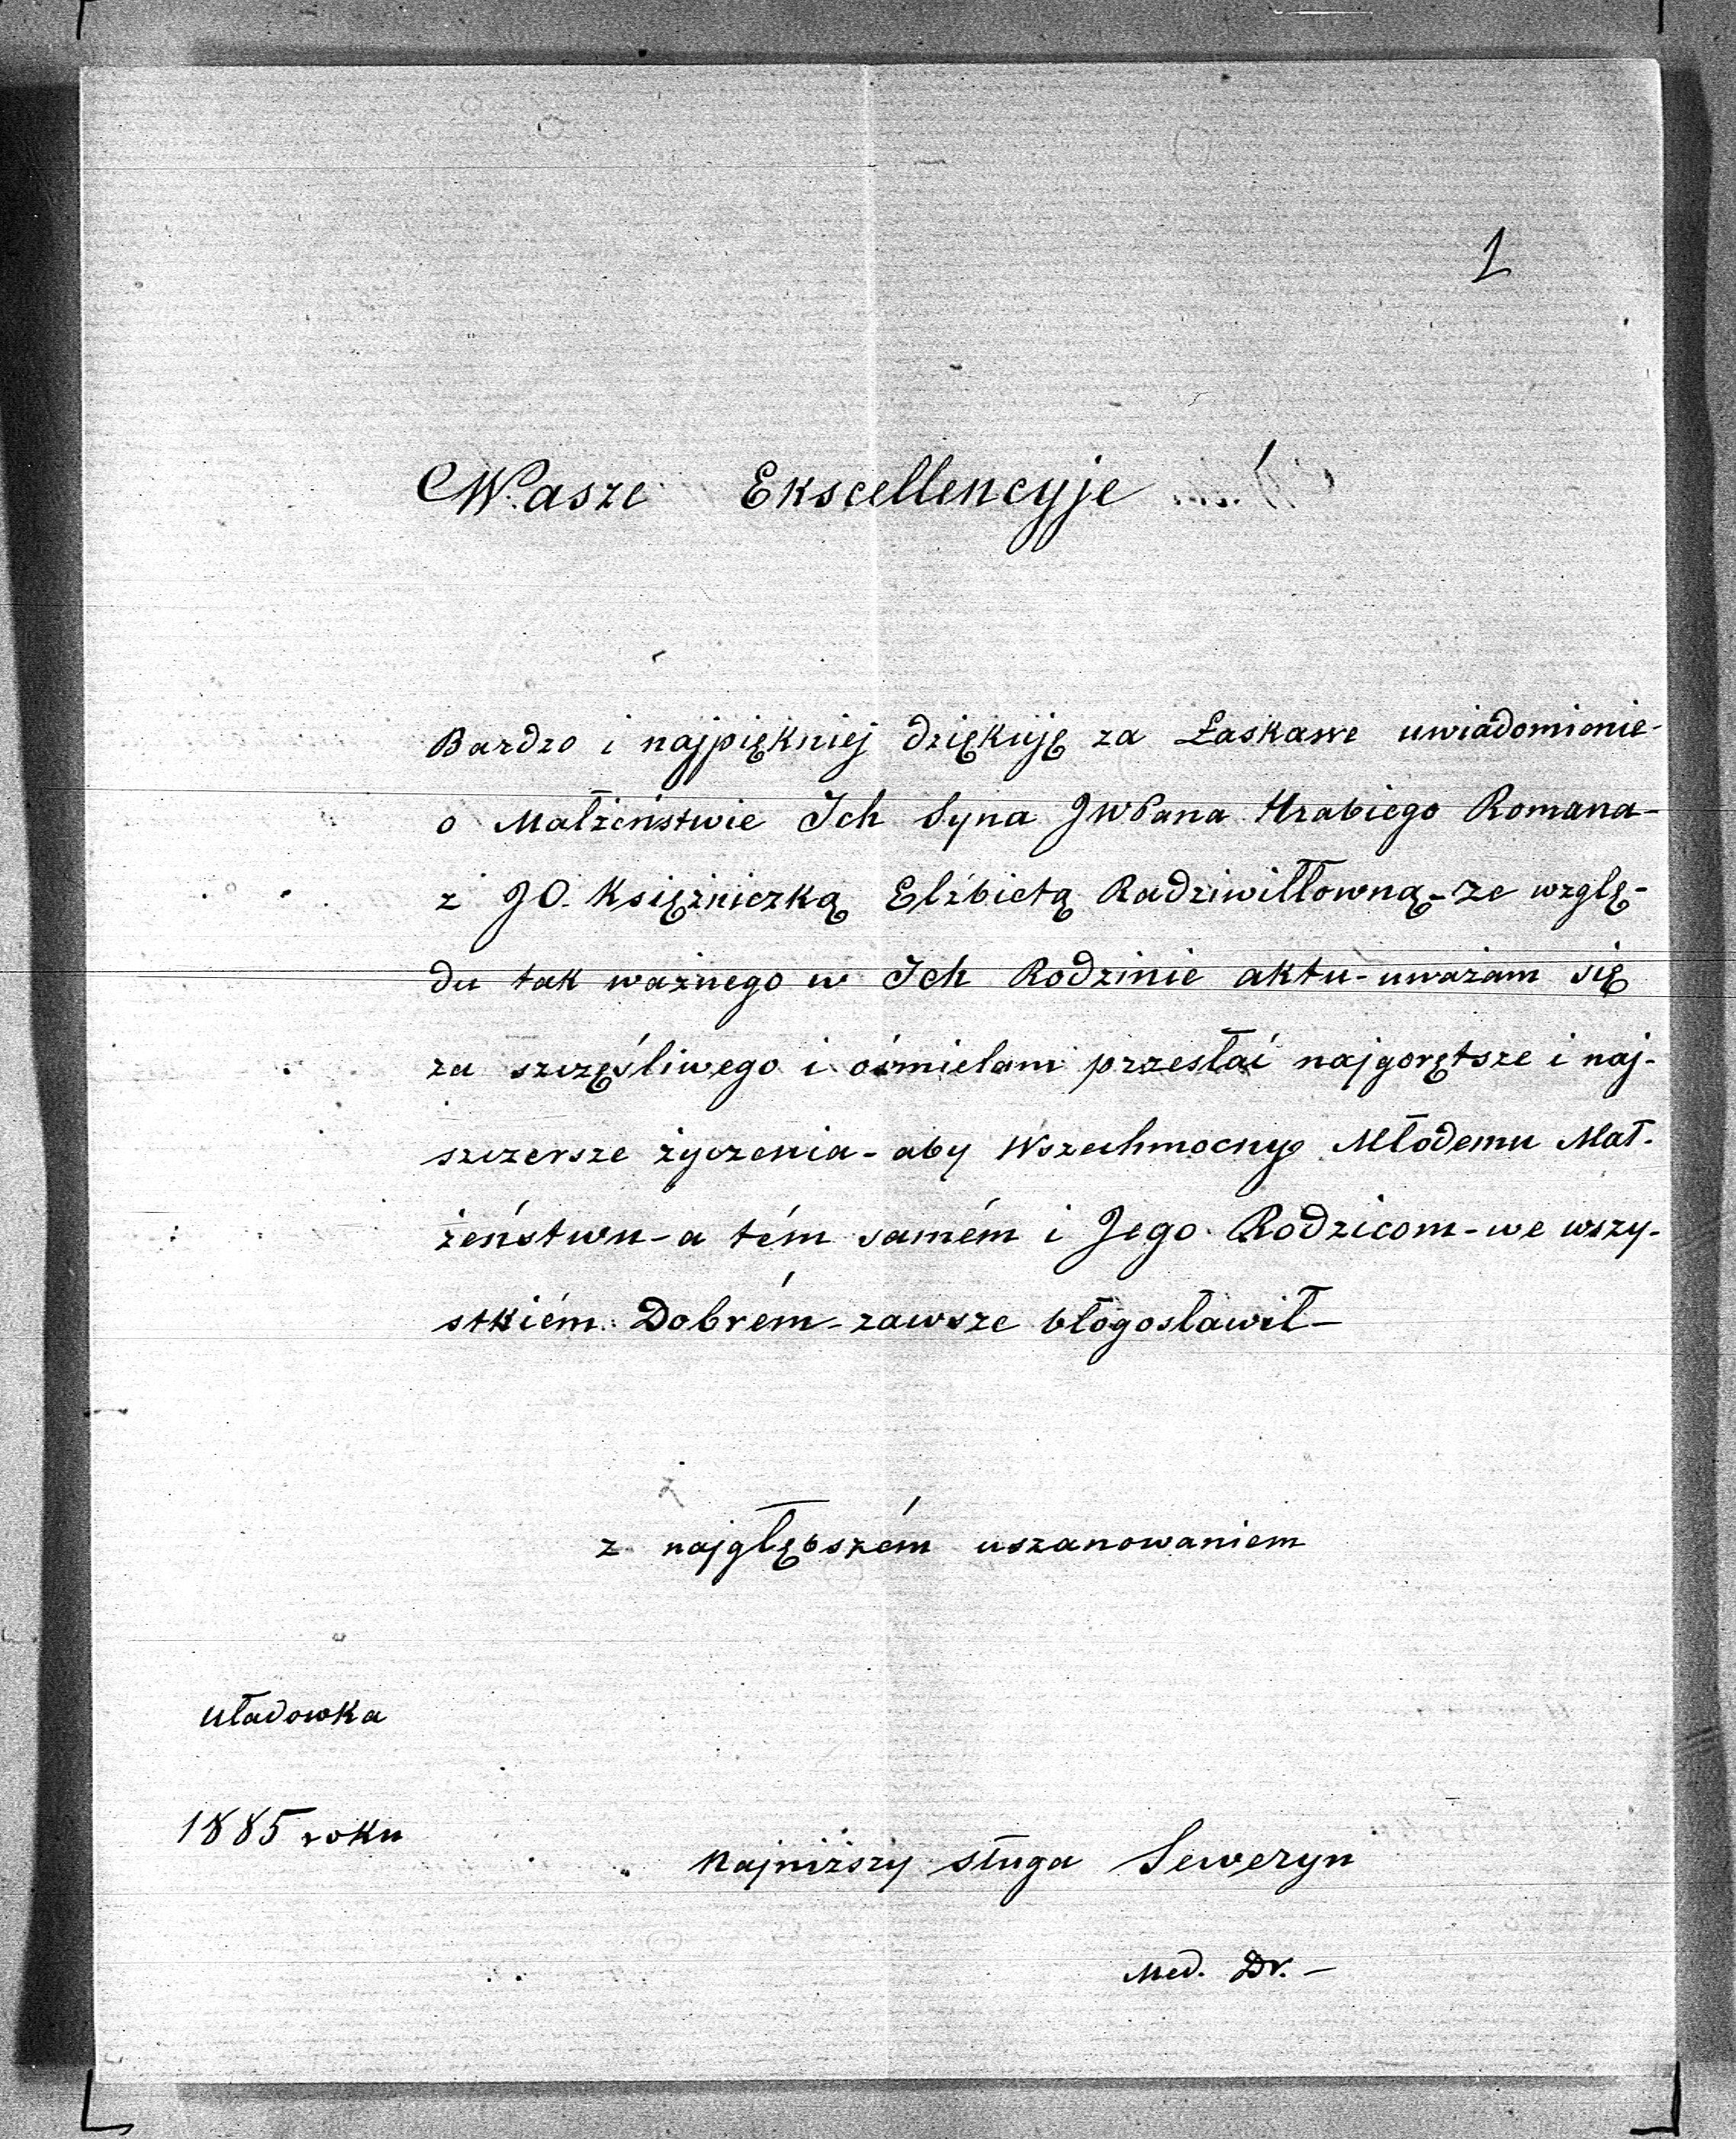 1
Wasze Ekscellencyje
Bardzo i najpiękniej dziękuję za Łaskawe uwiadomienie-
o Małżeństwie Ich Syna JWPana Hrabiego Romana-
z JO. Księżniczką Elżbietą Radziwiłłowną-ze wzglę-
du tak ważnego w Ich Rodzinie aktu-uważam się
za szczęśliwego i ośmielam przesłać najgorętsze i naj-
szczersze życzenia-aby Wszechmocny Młodemu Mał-
żeństwu-a tém samém i Jego Rodzicom-we wszy-
stkiém Dobrém-zawsze błogosławił-
z najgłębszém uszanowaniem
Uładowka
1885 roku
Najniższy sługa Seweryn
Med. Dr.-